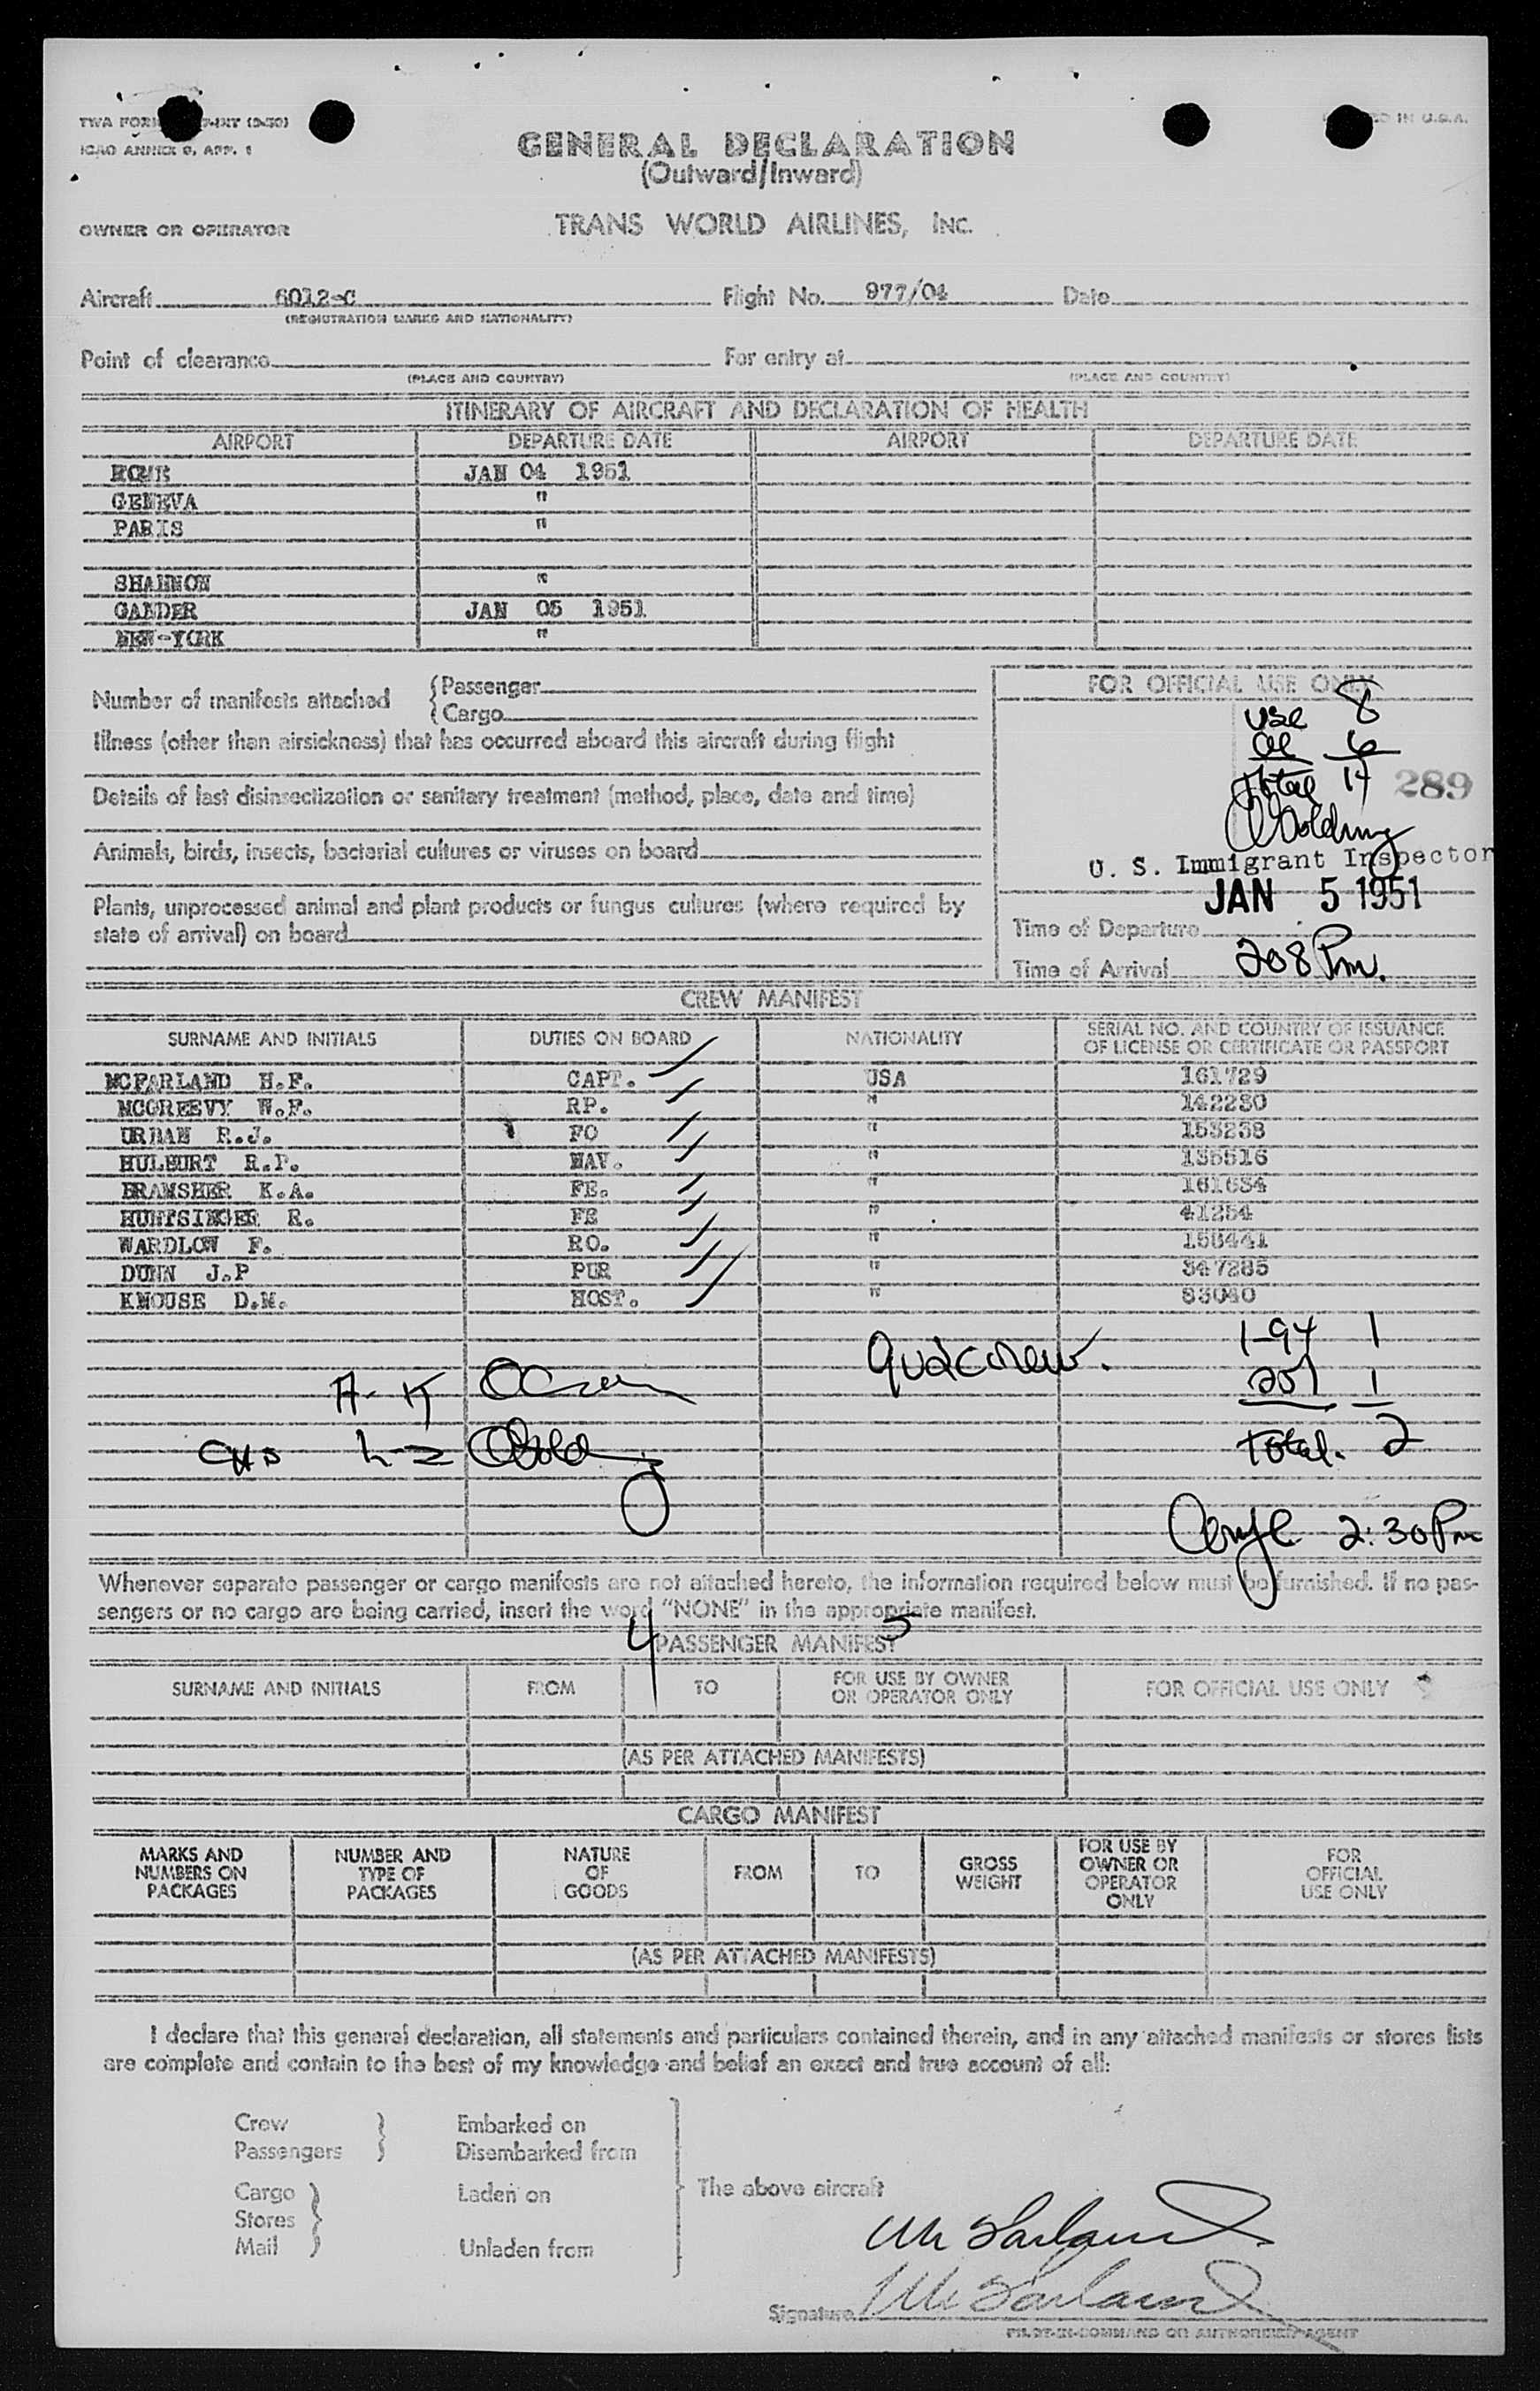 TWA FORM
ICAO ANNEX 9, APP. 1
IN U.S.A.
GENERAL DECLARATION
(Outward/Inward)
OWNER OR OPERATOR TRANS WORLD AIRLINES, INC.
Aircraft 6012-C Flight No. 977/04 Date
(REGISTRATION MARKS AND NATIONALITY)
Point of clearance For entry at
(PLACE AND COUNTRY) (PLACE AND COUNTRY)
ITINERARY OF AIRCRAFT AND DECLARATION OF HEALTH
AIRPORT DEPARTURE DATE AIRPORT DEPARTURE DATE
ROME JAN 04 1951
GENEVA "
PARIS "
SHANNON "
GANDER JAN 05 1951
NEW-YORK "
Number of manifests attached { Passenger
{ Cargo
Illness (other than airsickness) that has occurred aboard this aircraft during flight
Details of last disinsectization or sanitary treatment (method, place, date and time)
Animals, birds, insects, bacterial cultures or viruses on board
Plants, unprocessed animal and plant products or fungus cultures (where required by
state of arrival) on board
FOR OFFICIAL USE ONLY
USC 8
al 6
Total 14
289
Golding
U. S. Immigrant Inspector
JAN 5 1951
Time of Departure
Time of Arrival 208 Pm.
CREW MANIFEST
SURNAME AND INITIALS DUTIES ON BOARD NATIONALITY SERIAL NO. AND COUNTRY OF ISSUANCE
OF LICENSE OR CERTIFICATE OR PASSPORT
MCFARLAND H.F. CAPT. USA 161729
MCGREEVY W.F. RP. " 142230
URBAN R.J. FO " 153238
HULBURT R.P. NAV. " 135516
BRAMSHER K.A. FE. " 161634
HUNTSINGER R. FE " 41254
WARDLOW F. RO. " 158441
DUNN J.P PUR " 347285
KNOUSE D.M. HOST. " 83040
1-94 1
257 1
Total. 2
A-K
L-Z
2:30 Pm
Whenever separate passenger or cargo manifests are not attached hereto, the information required below must be furnished. If no pas-
sengers or no cargo are being carried, insert the word "NONE" in the appropriate manifest.
4 5
PASSENGER MANIFEST
SURNAME AND INITIALS FROM TO FOR USE BY OWNER
OR OPERATOR ONLY FOR OFFICIAL USE ONLY
(AS PER ATTACHED MANIFESTS)
CARGO MANIFEST
MARKS AND
NUMBERS ON
PACKAGES
NUMBER AND
TYPE OF
PACKAGES
NATURE
OF
GOODS
FROM
TO
GROSS
WEIGHT
FOR USE BY
OWNER OR
OPERATOR
ONLY
FOR
OFFICIAL
USE ONLY
(AS PER ATTACHED MANIFESTS)
I declare that this general declaration, all statements and particulars contained therein, and in any attached manifests or stores lists
are complete and contain to the best of my knowledge and belief an exact and true account of all:
Crew } Embarked on
Passengers } Disembarked from
Cargo } Laden on
Stores }
Mail } Unladen from
The above aircraft
McFarland
Signature McFarland
PILOT-IN-COMMAND OR AUTHORIZED AGENT